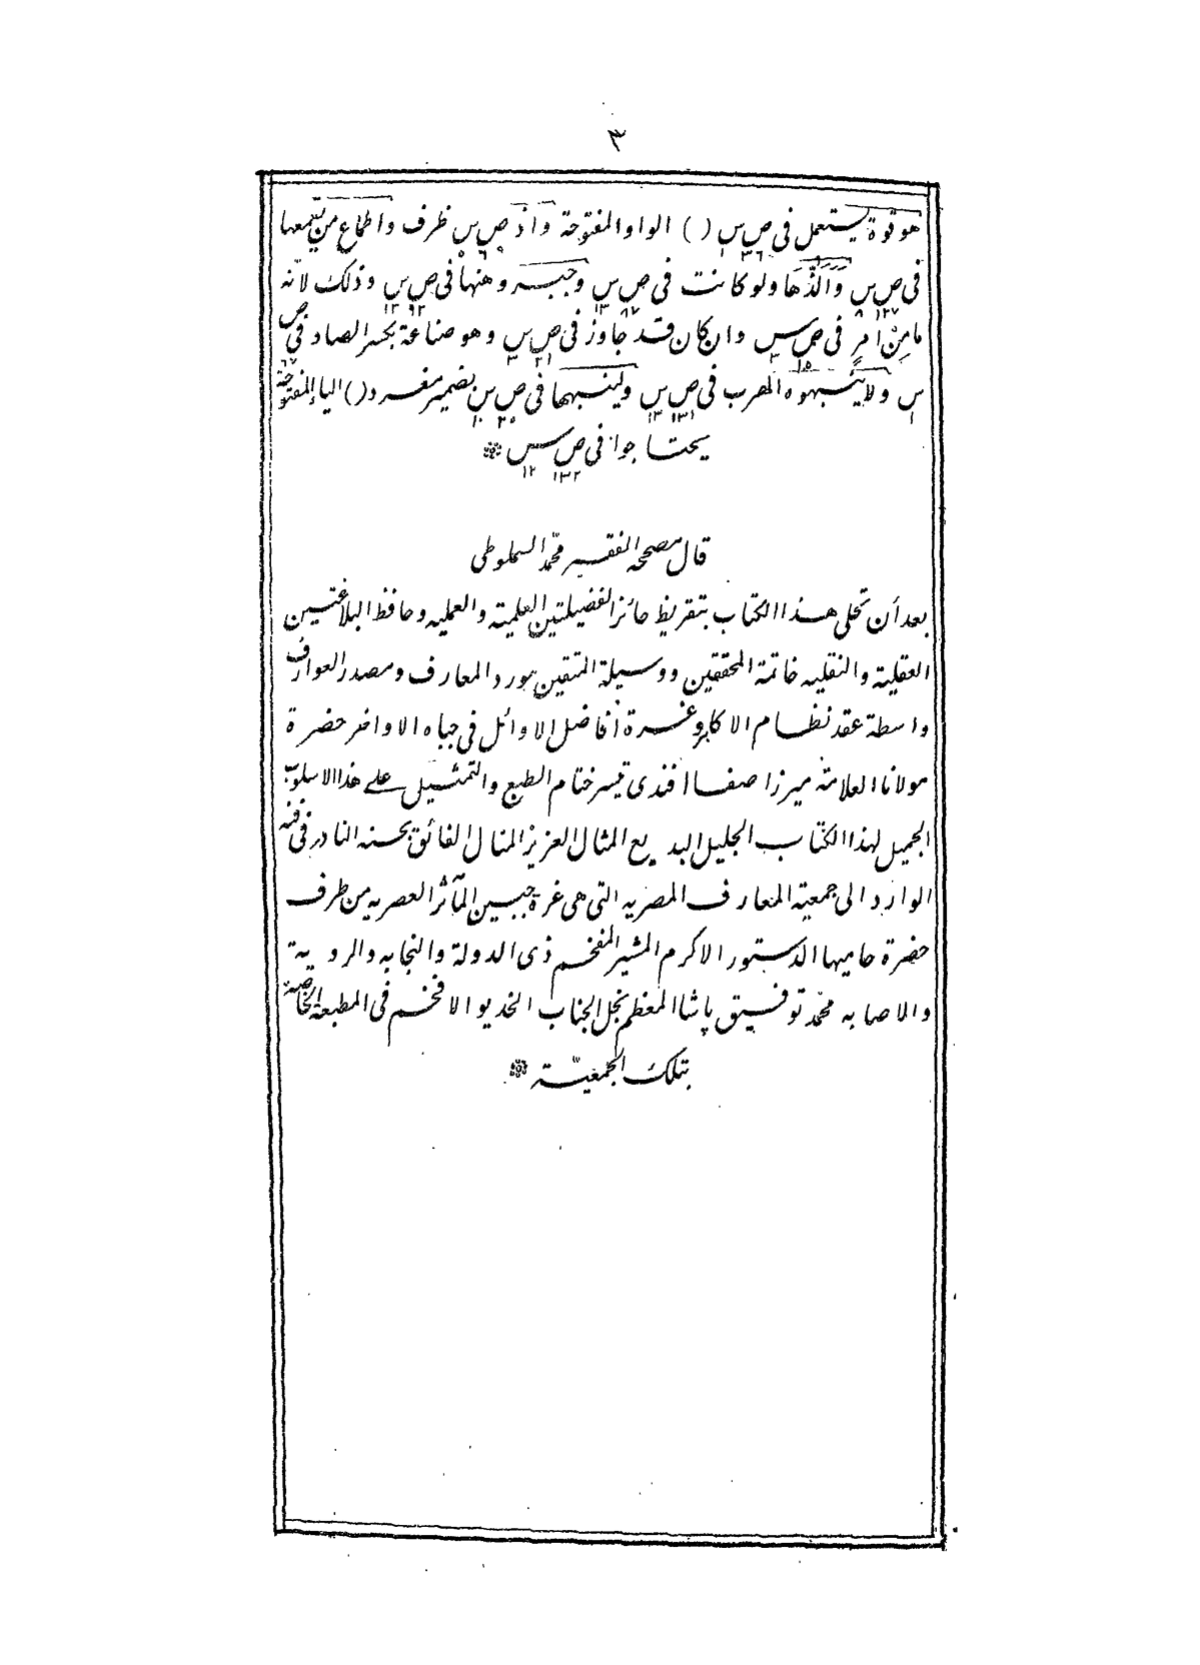 ٣
هو قوة يستعمل فى ص س ( ) الواو المفتوحة واذ ص س ظرف واطماع من يتبعها
فى ص س وألذها ولو كانت فى ص س وجبه وهنها فى ص س وذلك لانه
ما من امر فى ص س وان كان قد جاوز فى ص س وهو صناعة بكسر الصاد فى ص
س ولا ينبهوه المضرب فى ص س ولينبهها فى ص س بضمير مفرد ( ) الياء المفتوحة
يحتاجوا فى ص س
١٢ ١٣٢
قال مصححه الفقير محمد السملوطى
بعد أن تحلى هذا الكتاب بتقريظ حائز الفضيلتين العلمية والعمليه وحافظ البلاغتين
العقلية والنقليه خاتمة المحققين ووسيلة المتقين مورد المعارف ومصدر العوارف
واسطة عقد نظام الاكابر وغرة أفاضل الاوائل فى جباه الاواخر حضرة
مولانا العلامة ميرزا صفا افندى تيسر ختام الطبع والتمثيل على هذا الاسلوب
الجميل لهذا الكتاب الجليل البديع المثال العزيز المنال الفائق بحسنه النادر فى فنه
الوارد الى جمعية المعارف المصريه التى هى غرة جبين المآثر العصريه من طرف
حضرة حاميها الدستور الاكرم المشير المفخم ذى الدولة والنجابه والروية
والاصابه محمد توفيق باشا المعظم نجل الجناب الخديو الافخم فى المطبعة الخاصة
بتلك الجمعية